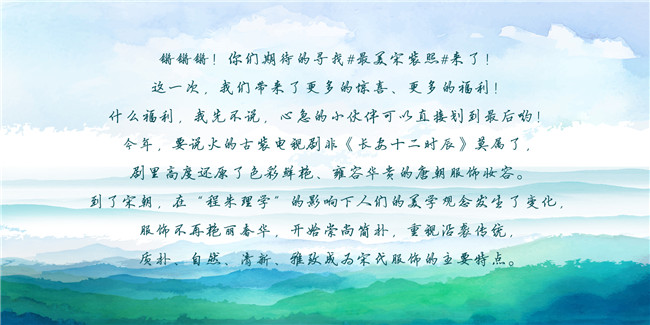 锵锵锵！你们期待的寻找#最美宋装照#来了！
这一次，我们带来了更多的惊喜、更多的福利！
什么福利，我先不说，心急的小伙伴可以直接划到最后哟！
今年，要说火的古装电视剧非《长安十二时辰》莫属了，
剧里高度还原了色彩鲜艳、雍容华贵的唐朝服饰妆容。
到了宋朝，在“程朱理学”的影响下人们的美学观念发生了变化，
服饰不再艳丽奢华，开始崇尚简朴，重视沿袭传统，
质朴、自然、清新、雅致成为宋代服饰的主要特点。